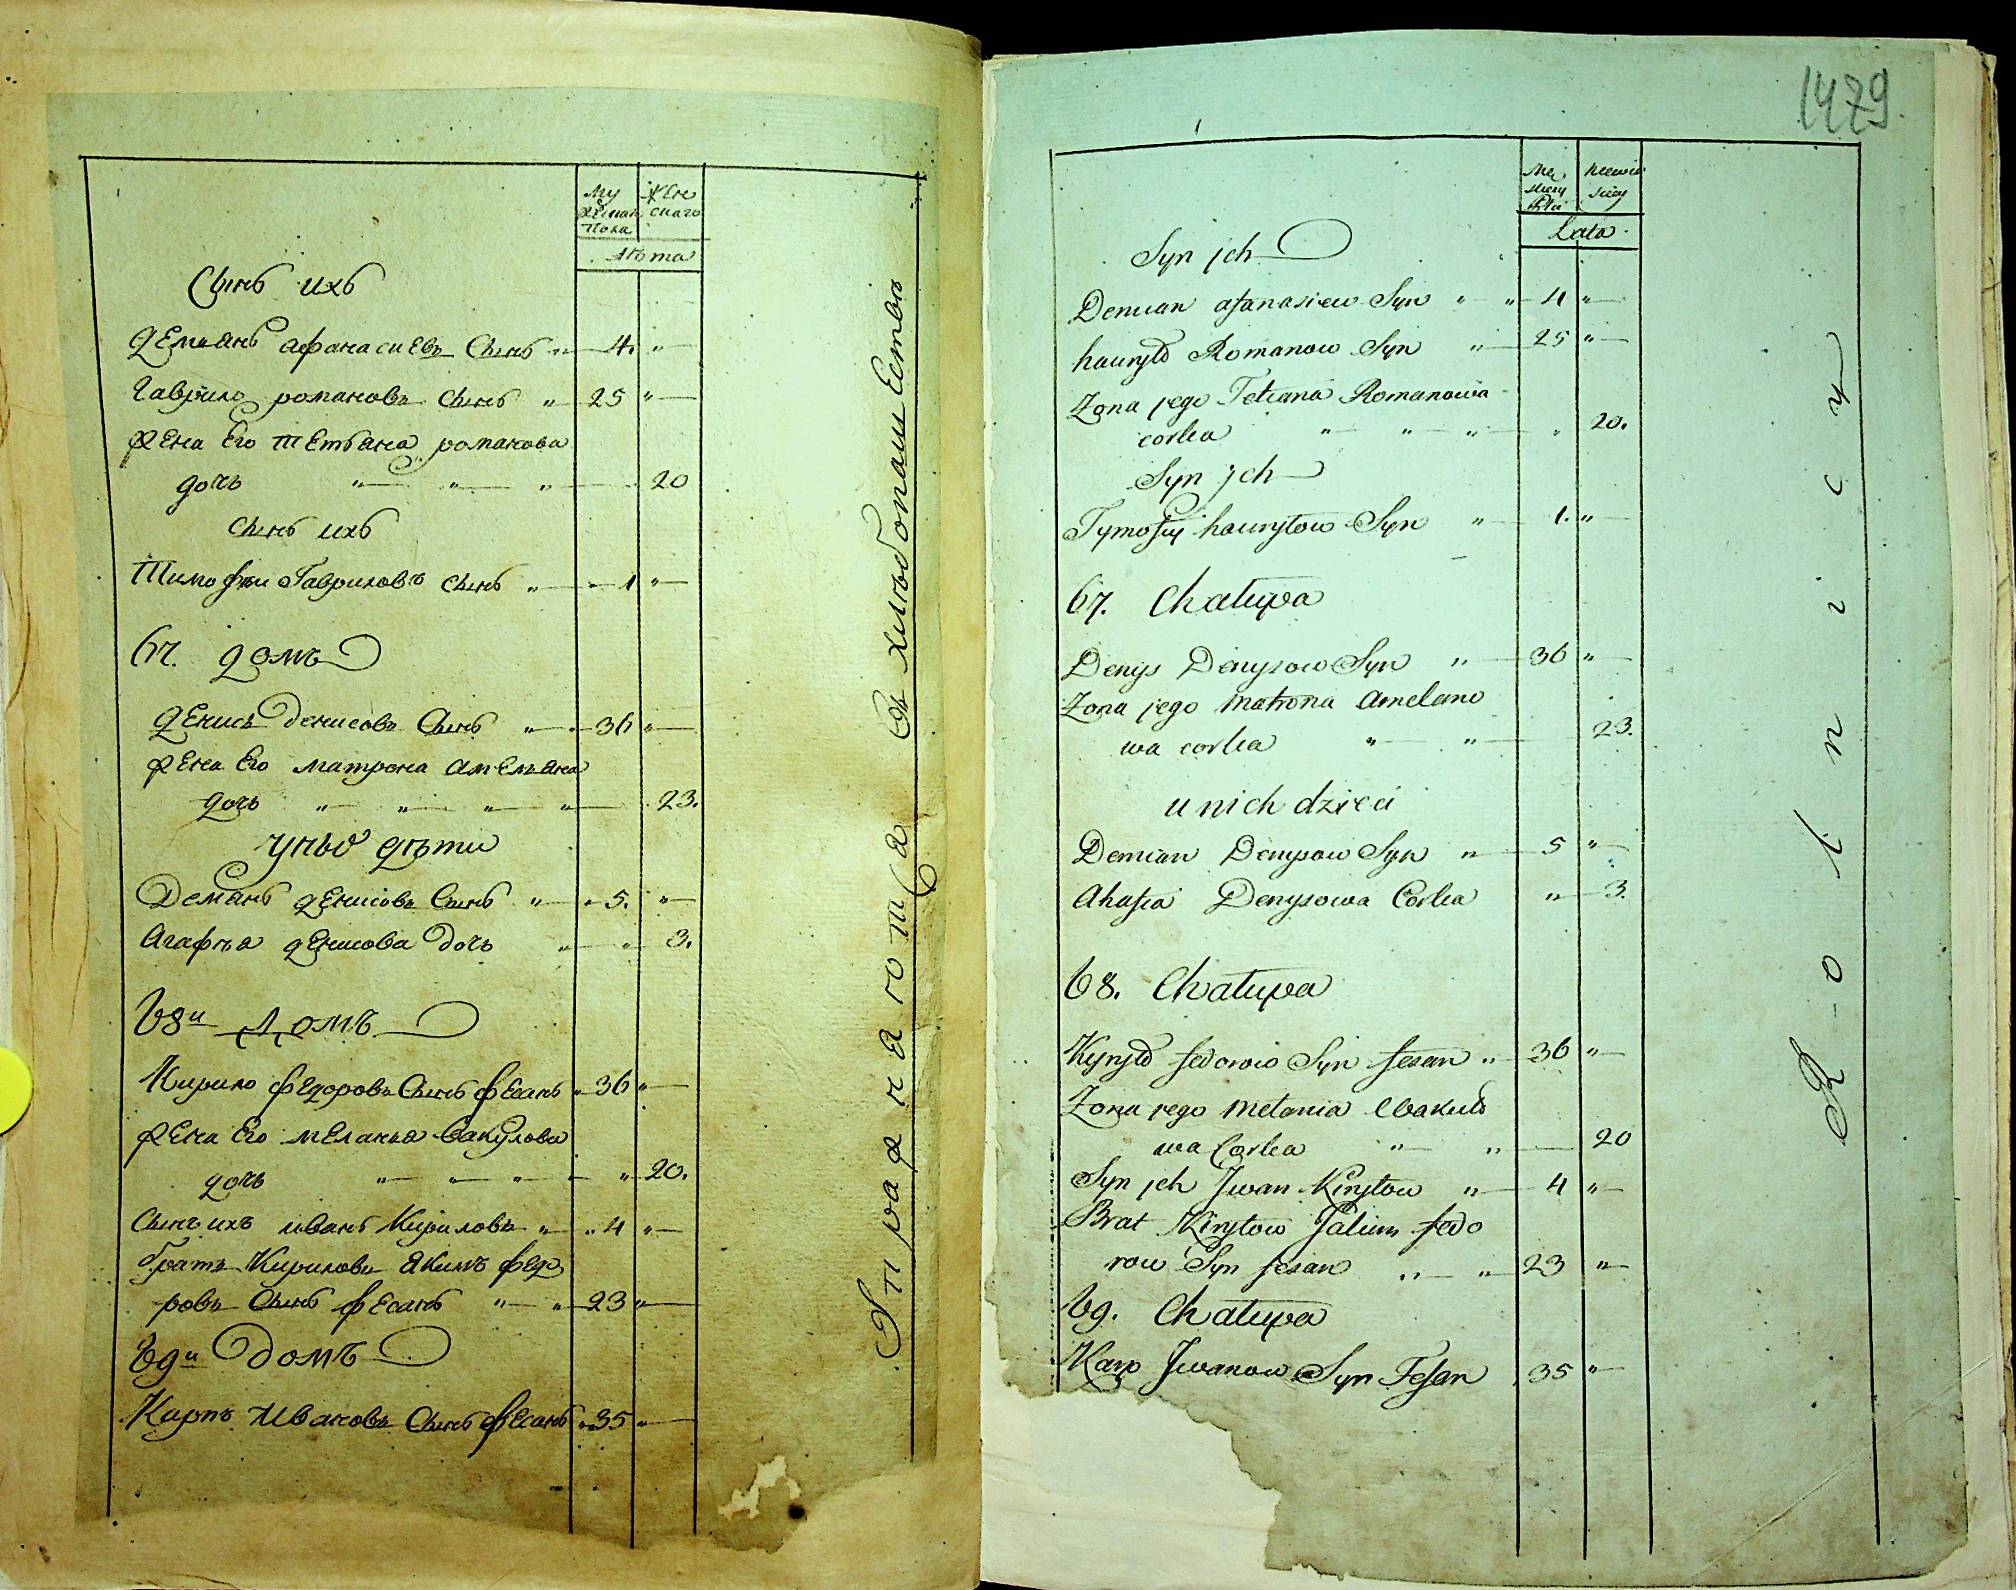 Му
жеска
пола
Жен
скаго
лѣта
Сынъ ихъ
Демьянъ Афанасиевъ Сынъ " 4. "
Гаврило романовъ Сынъ " 25 "
жена Его тетьяна романова
дочь " " " 20
сынъ ихъ
Тимофѣи Гавриловъ сынъ " 1 "
67. домъ
Денисъ Денисовъ Сынъ " 36 "
жена Его матрона амельяна
дочь " " " " 23.
дѣти
Демянъ денисовъ Сынъ " 5. "
Агафья денисова дочь " " 3.
68и Домъ
Кирило федоровъ Сынъ фесанъ " 36 "
жена Его меланья вакулова
дочь " " " " 20.
Сынъ ихъ иванъ Кириловъ " 4 "
братъ Кириловъ якимъ федо
ровъ Сынъ фесанъ " " 23 "
69и домъ
Карпъ Ивановъ Сынъ фесанъ " 35 "
Упражняютса въ хлѣбопашествѣ
1479.
Mę
skiey
Płci
niewie
sciey
Lata
Syn jch
Demian afanasiew Syn " " 4 "
hauryło Romanow Syn " 25 "
Zona jego Tetiana Romanowa
corka " " " " 20.
Syn jch
Tymofiy hauryłow Syn " 1. "
67. Chałupa
Denys Denysow Syn " 36 "
Zona jego Matrona amelano
wa corka " " 23.
u nich dzieci
Demian Denysow Syn " 5 "
ahafia Denysowa Corka " 3.
68. Chałupa
Kyryło fedorow Syn fesan " 36 "
Zona jego Melania Wakuło
wa Corka " " 20
Syn jch Jwan Kiryłow " 4 "
Brat Kiryłow Jakim fedo
row Syn fesan " " 23 "
69. Chałupa
Karp Jwanow Syn Fesan 35 "
Rolnicy